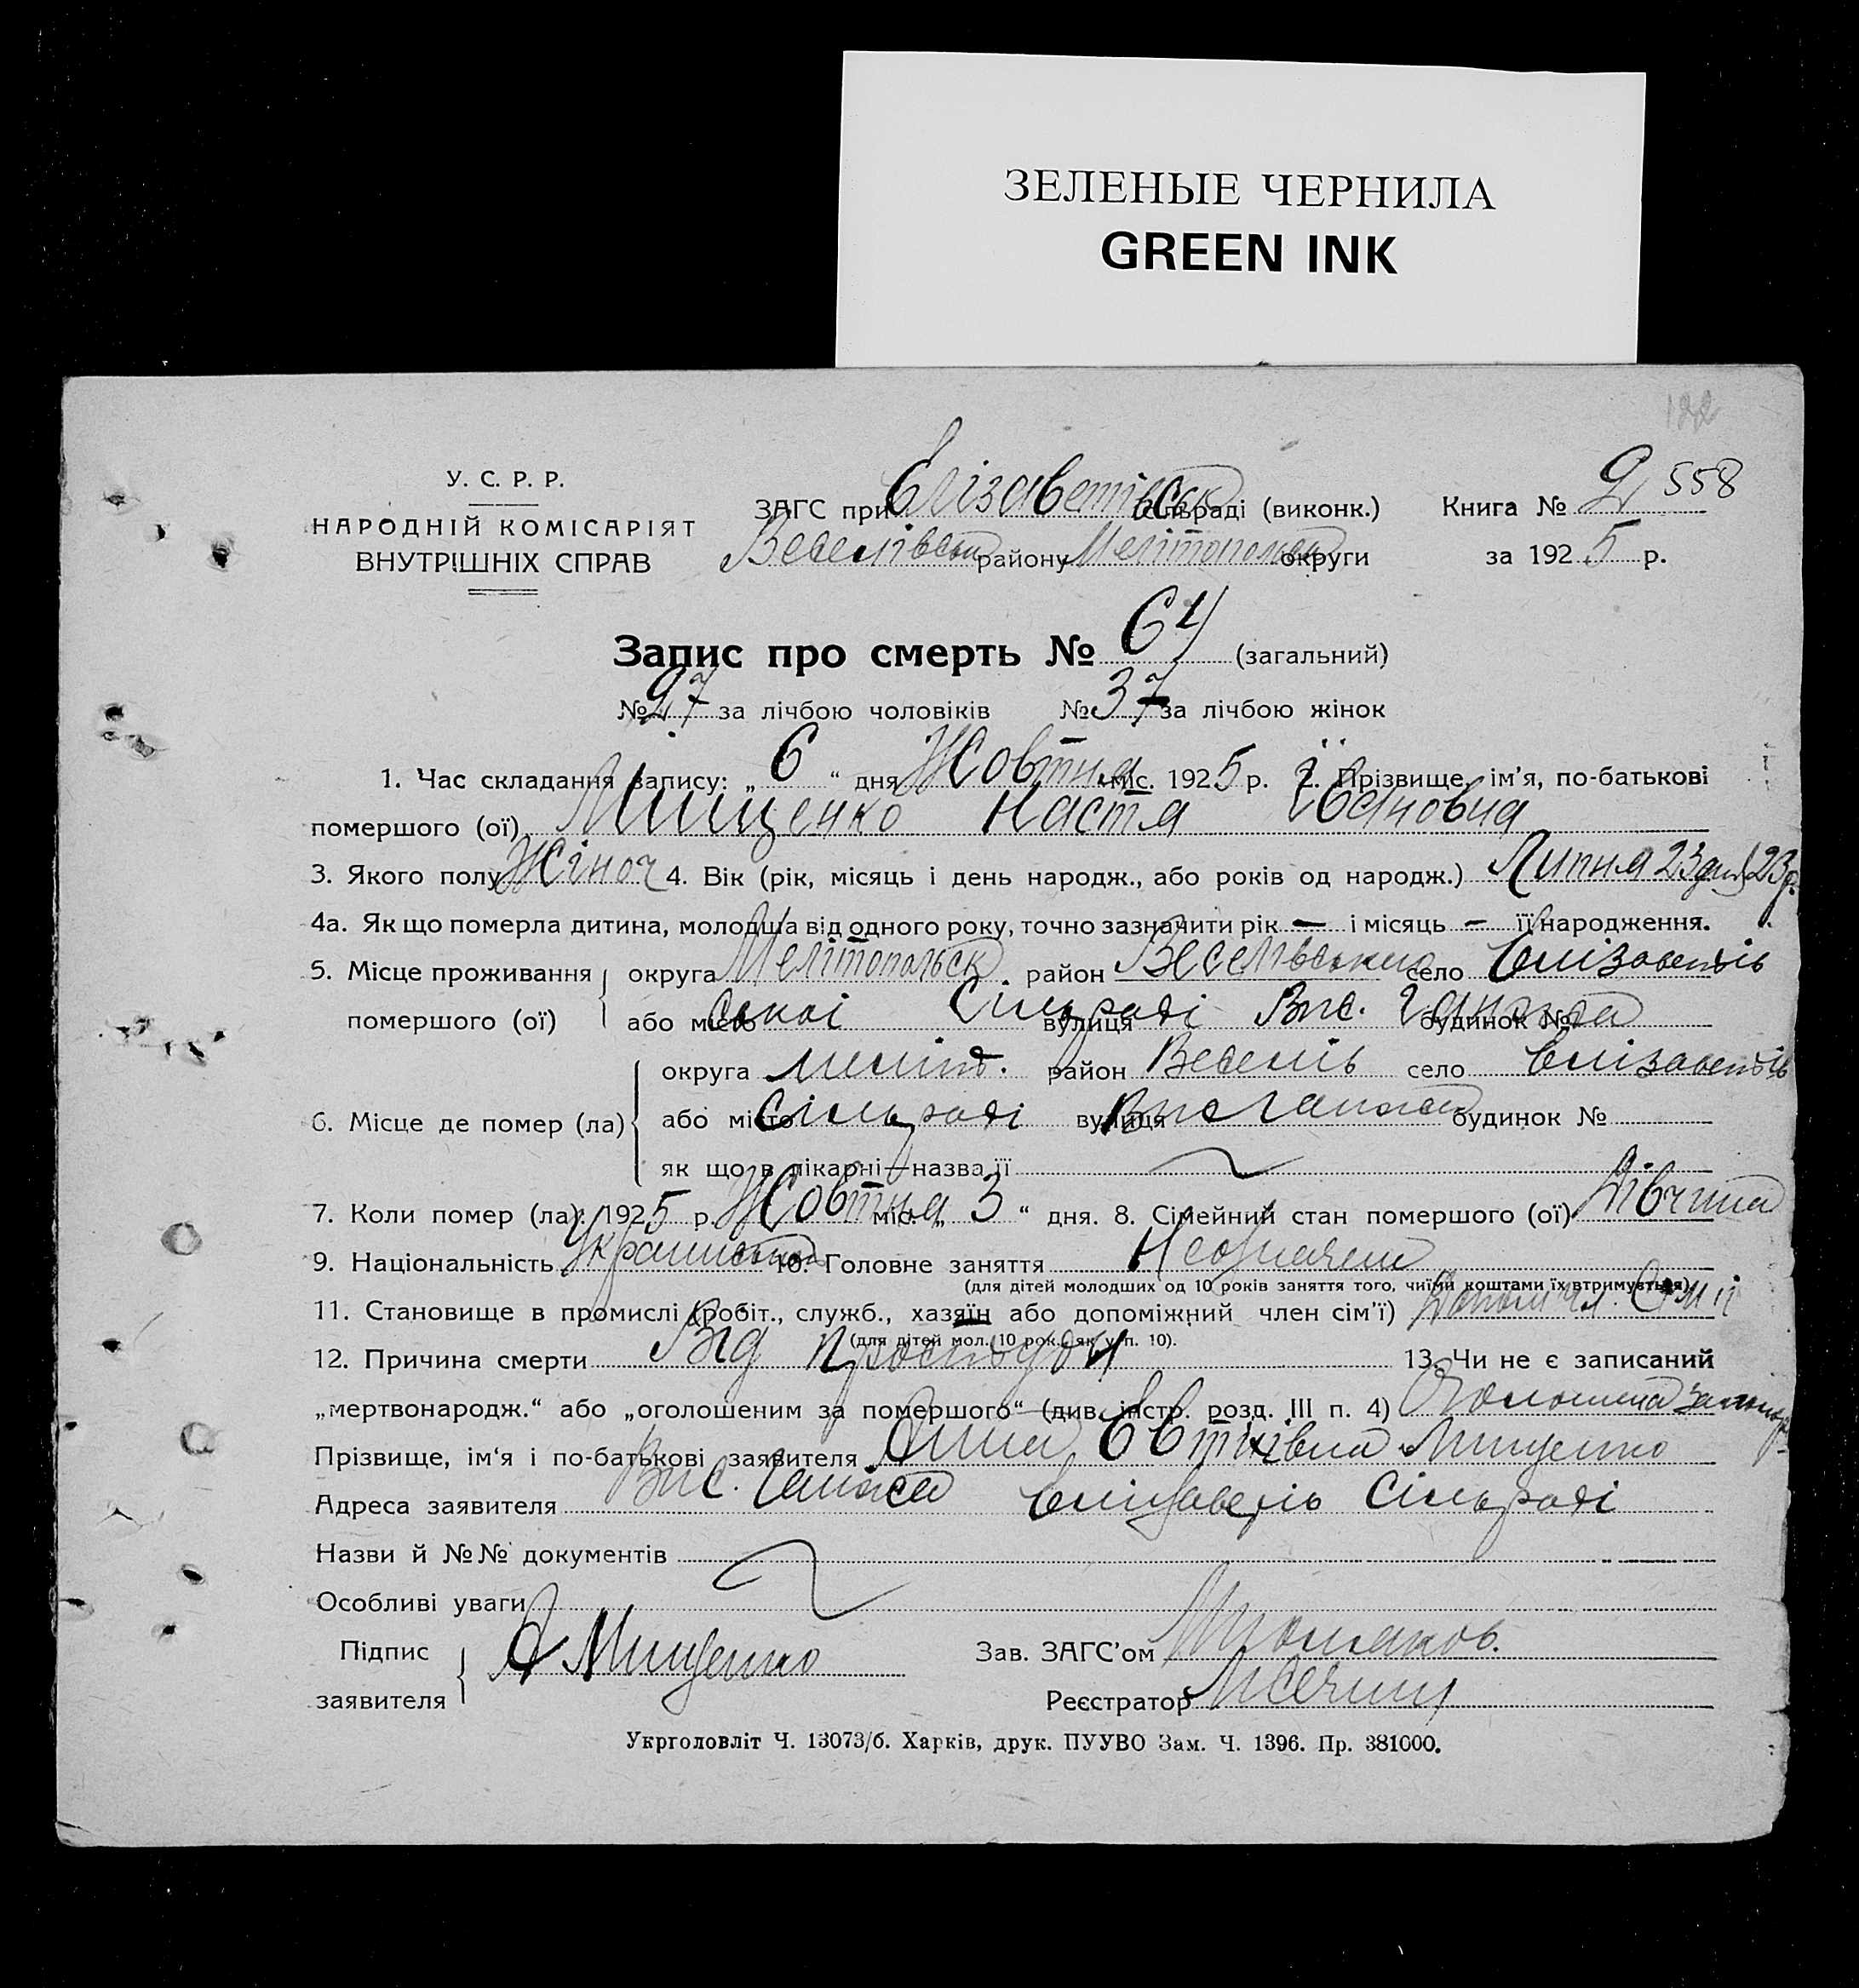 ЗЕЛЕНЫЕ ЧЕРНИЛА
GREEN INK
122
У. С. Р. Р.
НАРОДНІЙ КОМІСАРІЯТ
ВНУТРІШНІХ СПРАВ
ЗАГС при Єлізаветівськ сільраді (виконк.)
Веселівськ району Мелітопольськ округи
Книга № 2 558
за 1925 р.
Запис про смерть № 64 (загальний)
№ 27 за лічбою чоловіків № 37 за лічбою жінок
1. Час складання запису: „ 6 “ дня Жовтня міс. 1925 р. 2. Прізвище, ім’я, по-батькові
помершого (ої) Мищенко Настя Івановна
3. Якого полу Жіноч 4. Вік (рік, місяць і день народж., або років од народж.) Липня 23 дня 23 р.
4а. Як що померла дитина, молодша від одного року, точно зазначити рік — і місяць — її народження.
5. Місце проживання помершого (ої) округа Мелітопольск район Веселівського село Єлізаветів
або місто ської Сільраді вулиця Вис. будинок №
6. Місце де помер (ла) округа Меліт. район Веселів село Єлізаветів
або місто Сільраді вулиця Вис будинок №
як що в лікарні—назва її
7. Коли помер (ла). 1925 р. Жовтня міс. „ 3 “ дня. 8. Сімейний стан помершого (ої) Дівчина
9. Національність Українська 10. Головне заняття
(для дітей молодших од 10 років заняття того, чиїми коштами їх втримується)
11. Становище в промислі (робіт., служб., хазяїн або допоміжний член сім’ї) Допоміжн. Сімії
(для дітей мол. 10 рок. як у п. 10).
12. Причина смерти Від простуди 13. Чи не є записаний
„мертвонародж.“ або „оголошеним за помершого“ (див. інстр. розд. III п. 4)
Прізвище, ім‘я і по-батькові заявителя Анна Євтіхівна Мищенко
Адреса заявителя Вис. Єлізаветів Сільраді
Назви й №№ документів
Особливі уваги
Підпис заявителя А Мищенко
Зав. ЗАГС’ом
Реєстратор
Укрголовліт Ч. 13073/б. Харків, друк. ПУУВО Зам. Ч. 1396. Пр. 381000.